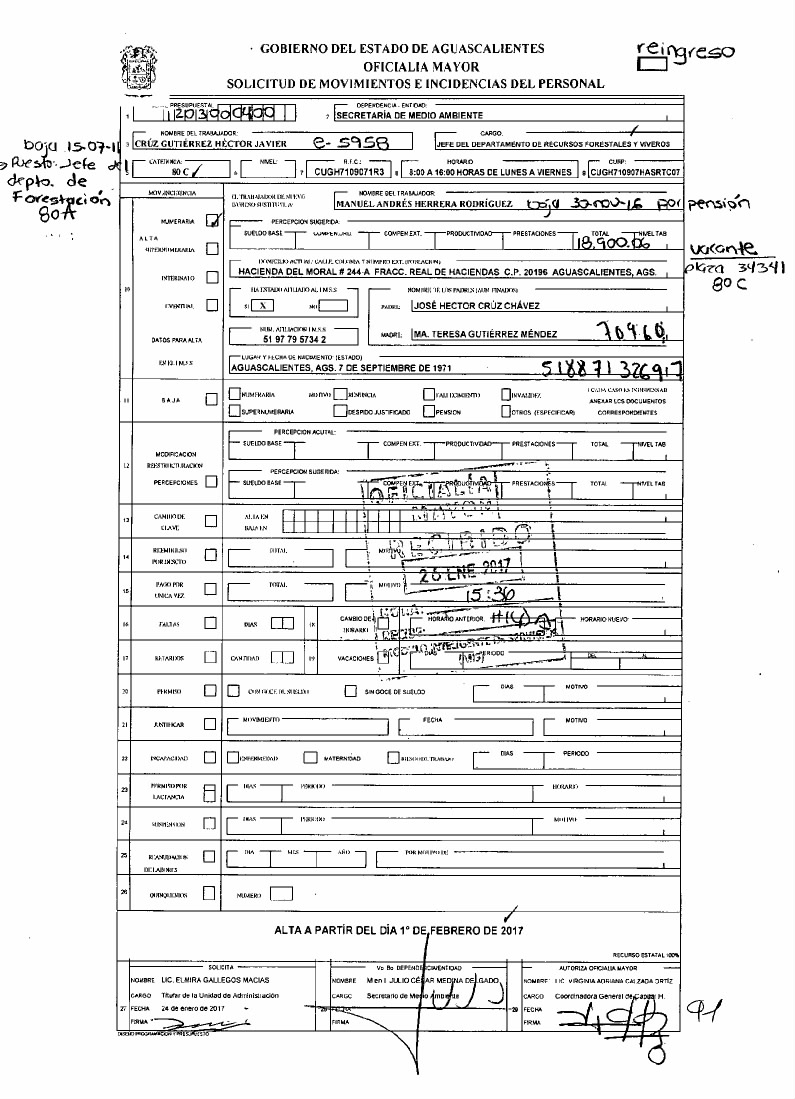 GOBIERNO DEL ESTADO DE AGUASCALIENTES
OFICIALIA MAYOR
SOLICITUD DE MOVIMIENTOS E INCIDENCIAS DEL PERSONAL
reingreso
PRESUPUESTAL DEPENDENCIA - ENTIDAD:
1 2 SECRETARÍA DE MEDIO AMBIENTE
NOMBRE DEL TRABAJADOR: CARGO:
3 CRÚZ GUTIÉRREZ HÉCTOR JAVIER e-5958 JEFE DEL DEPARTAMENTO DE RECURSOS FORESTALES Y VIVEROS
baja 15-07-11
Puesto: Jefe de
depto. de
Forestación
80A
CATEGORIA: NIVEL: R.F.C.: HORARIO CURP:
80 C 6 7 CUGH7109071R3 8 8:00 A 16:00 HORAS DE LUNES A VIERNES 9 CUGH710907HASRTC07
MOV/INCIDENCIA EL TRABAJADOR ES DE NUEVO NOMBRE DEL TRABAJADOR:
MANUEL ANDRÉS HERRERA RODRÍGUEZ baja 30-nov-16 por pensión
NUMERARIA PERCEPCION SUGERIDA:
SUELDO BASE COMPEN EXT. PRODUCTIVIDAD PRESTACIONES TOTAL NIVEL TAB
18,900.06
vacante
plaza 34341
80 C
ALTA
SUPERNUMERARIA
HACIENDA DEL MORAL # 244-A FRACC. REAL DE HACIENDAS C.P. 20196 AGUASCALIENTES, AGS.
INTERINATO HA ESTADO AFILIADO AL I.M.S.S NOMBRE DE LOS PADRES (AUN FINADOS)
10
EVENTUAL SI X NO PADRE: JOSÉ HECTOR CRÚZ CHÁVEZ
NUM. AFILIACION I.M.S.S
DATOS PARA ALTA 51 97 79 5734 2 MADRE: MA. TERESA GUTIÉRREZ MÉNDEZ
EN EL I.M.S.S LUGAR Y FECHA DE NACIMIENTO (ESTADO)
AGUASCALIENTES, AGS. 7 DE SEPTIEMBRE DE 1971 518871326917
11 BAJA NUMERARIA MOTIVO RENUNCIA FALLECIMIENTO INVALIDEZ
SUPERNUMERARIA DESPIDO JUSTIFICADO PENSION OTROS (ESPECIFICAR)
ANEXAR LOS DOCUMENTOS
CORRESPONDIENTES
PERCEPCION ACUTAL:
SUELDO BASE COMPEN EXT. PRODUCTIVIDAD PRESTACIONES TOTAL NIVEL TAB
MODIFICACION
12 REESTRUCTURACION
PERCEPCIONES PERCEPCION SUGERIDA:
SUELDO BASE COMPEN EXT. PRODUCTIVIDAD PRESTACIONES TOTAL NIVEL TAB
OFICIALIA
MAYOR
13 CAMBIO DE CLAVE ALTA EN
BAJA EN
RECIBIDO
14 REEMBOLSO POR DESCTO TOTAL MOTIVO
26 ENE 2017
15 PAGO POR UNICA VEZ TOTAL MOTIVO
15:30
16 FALTAS DIAS 18 CAMBIO DE HORARIO HORARIO ANTERIOR: HORARIO NUEVO:
17 RETARDOS CANTIDAD 19 VACACIONES DIAS PERIODO DEL AL
20 PERMISO CON GOCE DE SUELDO SIN GOCE DE SUELDO DIAS MOTIVO
21 JUSTIFICAR MOVIMIENTO FECHA MOTIVO
22 INCAPACIDAD ENFERMEDAD MATERNIDAD RIESGO DE TRABAJO DIAS PERIODO
23 PERMISO POR LACTANCIA DIAS PERIODO HORARIO
24 SUSPENSION DIAS PERIODO MOTIVO
25 REANUDACION DE LABORES DIA MES AÑO POR MOTIVO DE
26 QUINQUENIOS NUMERO
ALTA A PARTÍR DEL DÍA 1° DE FEBRERO DE 2017
RECURSO ESTATAL 100%
SOLICITA Vo Bo DEPENDENCIA/ENTIDAD AUTORIZA OFICIALIA MAYOR
NOMBRE LIC. ELMIRA GALLEGOS MACIAS NOMBRE M en I. JULIO CÉSAR MEDINA DELGADO NOMBRE: LIC. VIRGINIA ADRIANA CALZADA ORTÍZ
CARGO Titular de la Unidad de Administración CARGO Secretario de Medio Ambiente CARGO Coordinadora General de Capital H.
27 FECHA 24 de enero de 2017 28 FECHA 29 FECHA
FIRMA FIRMA FIRMA